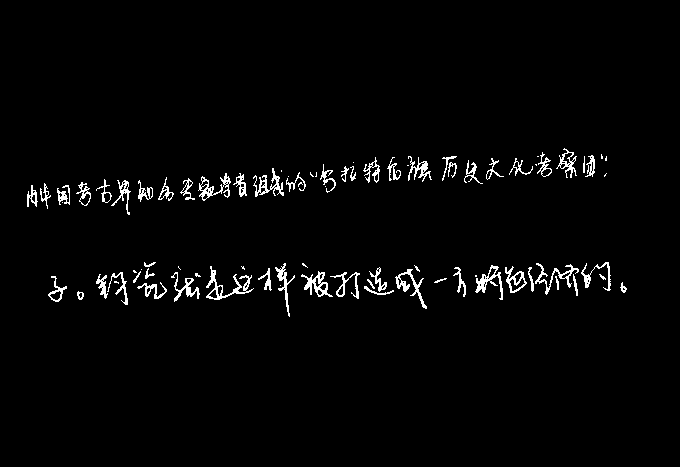 由中国考古界知名专家学者组成的“乌拉特后旗历史文化考察团”：
子。钧瓷就是这样被打造成一方特色经济的。